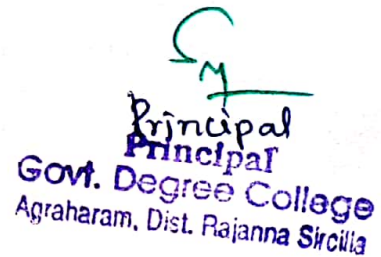 Principal
Principal
Govt. Degree College
Agraharam, Dist. Rajanna Sircilla